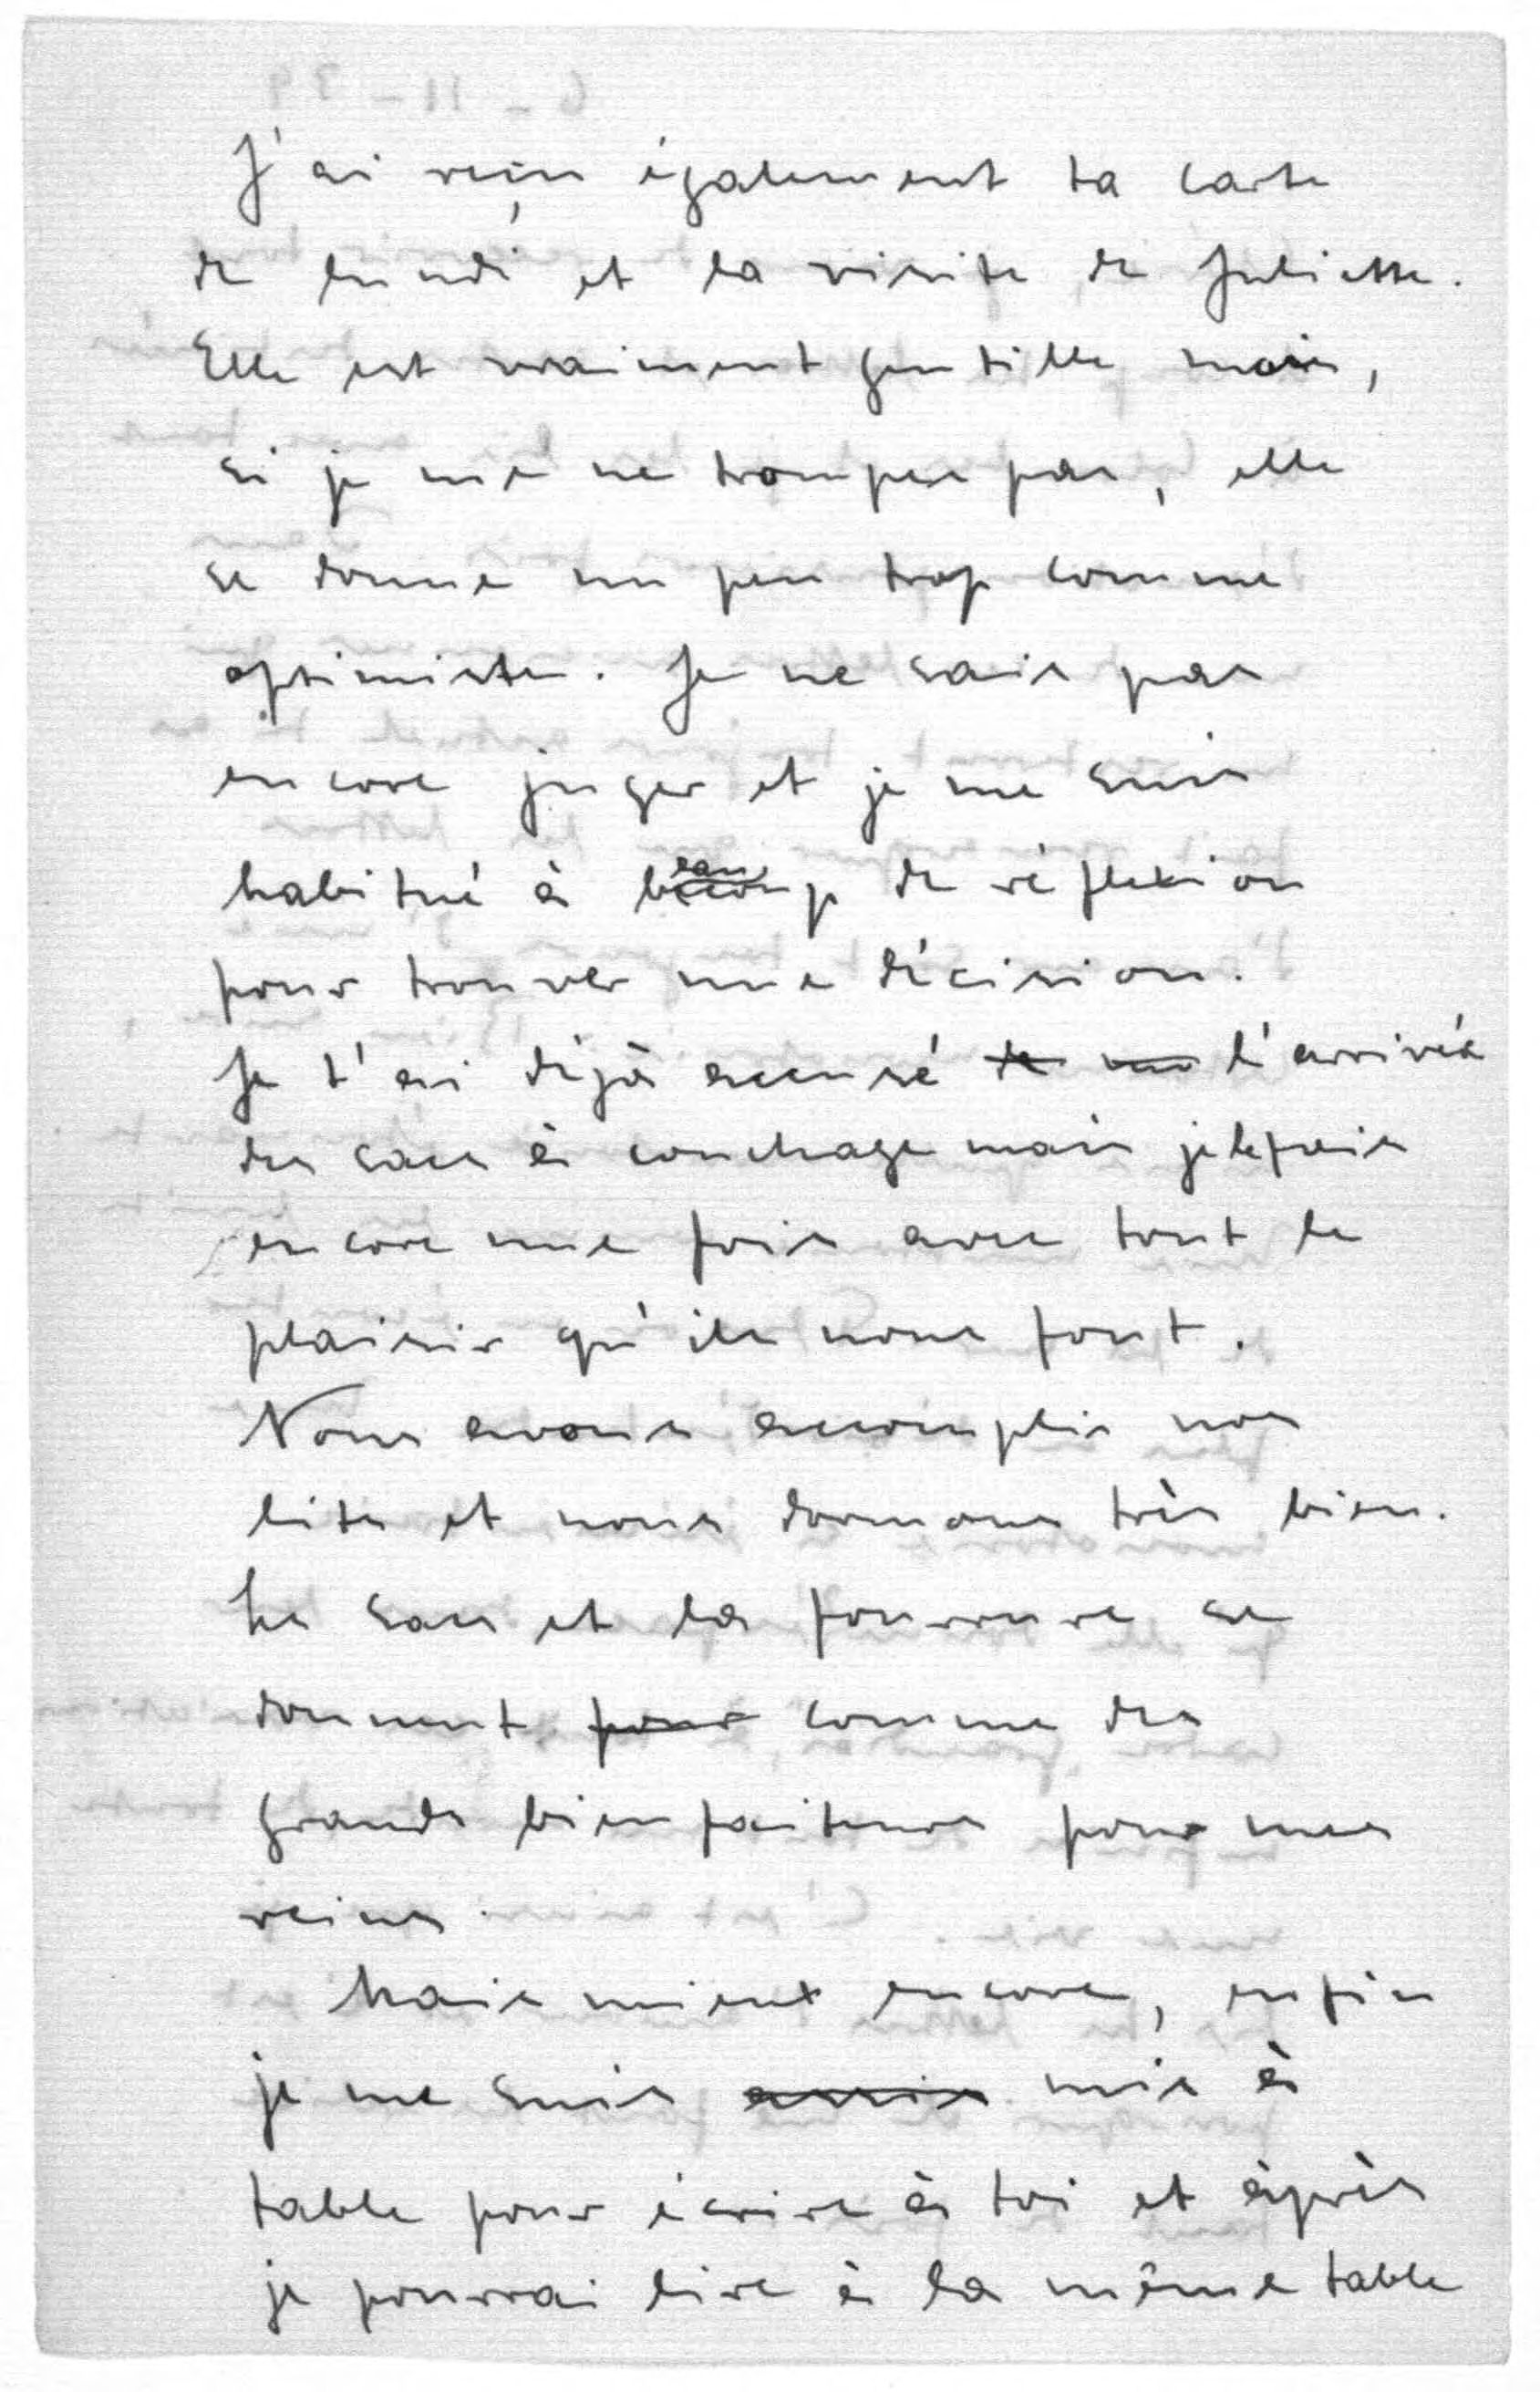 J'ai reçu également ta carte
de lundi et la visite de Juliette.
Elle est vraiment gentille mais,
si je me ne trompe pas, elle
se donne un peu trop comme
optimiste. Je ne sais pas
encore juger et je me suis
habitué à beaucoup de réflexion
pour trouver une décision.
Je t'ai déjà accusé l'arrivée
des sacs à couchage mais je le fais
encore une fois avec tout le
plaisir qu'ils nous font.
Nous avons accomplis nos
lits et nous dormons très bien.
Le sac et la fourrure se
donnent pour comme des
grands bienfaiteurs pour mes
reins.
Mais mieux encore, enfin
je me suis assis mis à
table pour écrire à toi et après
je pourrai lire à la même table